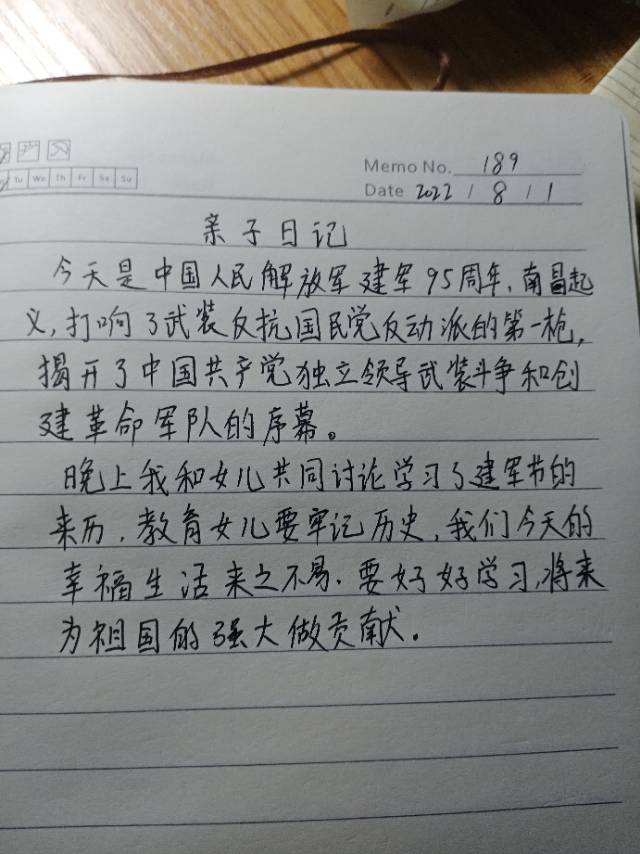 Memo No. 189
Tu We Th Fr Sa Su
Date 2022 / 8 / 1
亲子日记
今天是中国人民解放军建军95周年,南昌起
义,打响了武装反抗国民党反动派的第一枪,
揭开了中国共产党独立领导武装斗争和创
建革命军队的序幕。
晚上我和女儿共同讨论学习了建军节的
来历,教育女儿要牢记历史,我们今天的
幸福生活来之不易.要好好学习,将来
为祖国的强大做贡献.